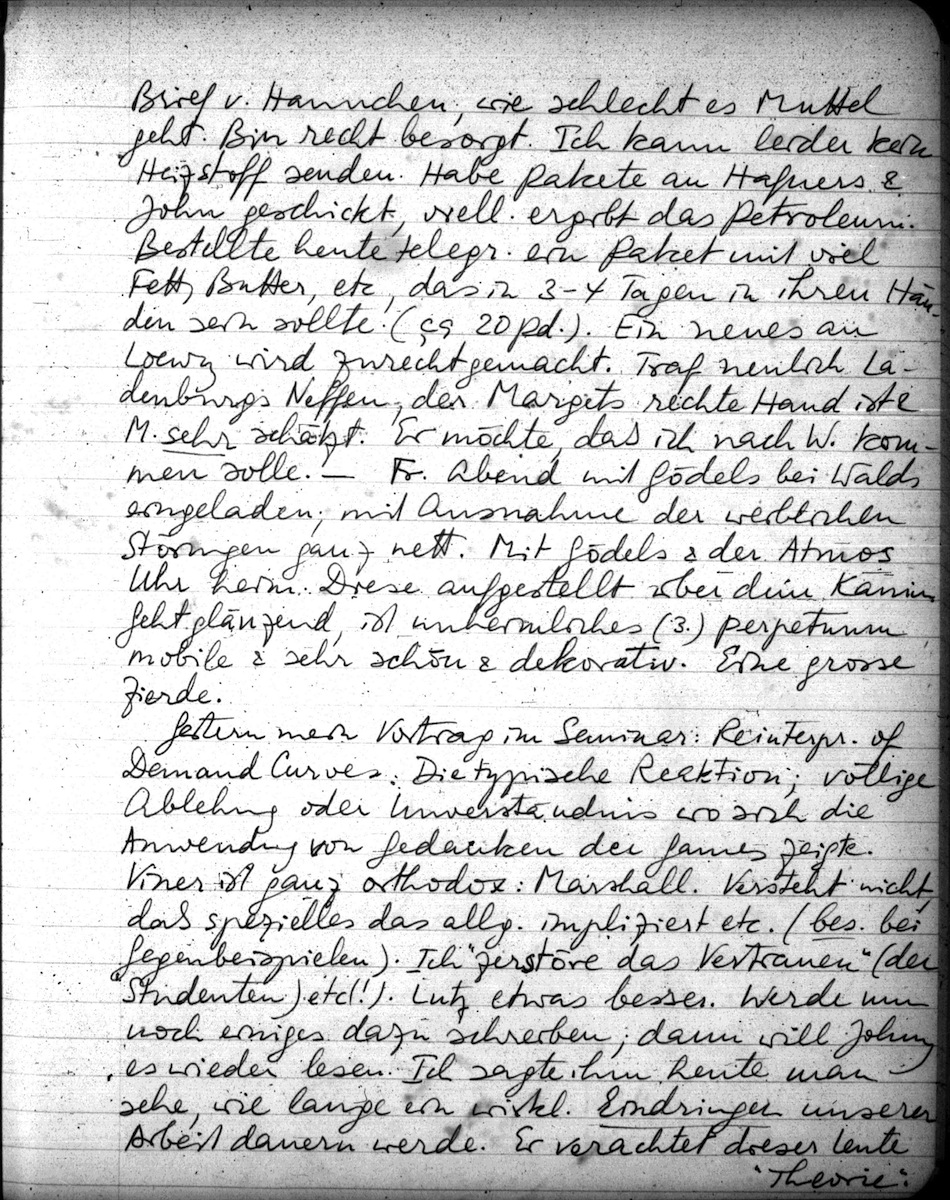 Brief v. Hannchen, wie schlecht es Muttel
geht. Bin recht besorgt. Ich kann leider kein
Heizstoff senden. Habe Pakete an Hafners &
John geschickt, viell. ergibt das Petroleum.
Bestellte heute telegr. ein Paket mit viel
Fett, Butter, etc, das in 3-4 Tagen in ihren Hän-
den sein sollte. (ca 20 pd.). Ein neues an
Loewy wird zurechtgemacht. Traf neulich La-
denburgs Neffen, der Margets rechte Hand ist &
M. sehr schätzt. Er möchte, dass ich nach W. kom-
men solle. — Fr. Abend mit Gödels bei Walds
eingeladen; mit Ausnahme der weiblichen
Störungen ganz nett. Mit Gödels & der Atmos
Uhr heim. Diese aufgestellt über dem Kamin
Geht glänzend, ist unheimliches (3.) perpetuum
mobile & sehr schön & dekorativ. Eine grosse
Zierde.
Gestern mein Vortrag im Seminar: Reinterpr. of
Demand Curves. Die typische Reaktion; völlige
Ablehng oder Unverständnis wo sich die
Anwendung von Gedanken der Games zeigte.
Viner ist ganz orthodox: Marshall. Versteht nicht,
dass spezielles das allg. impliziert etc. (bes. bei
Gegenbeispielen). Ich "zerstöre das Vertrauen" (der
Studenten) etc!). Lutz etwas besser. Werde nun
noch einiges dazu schreiben; dann will Johnny
es wieder lesen. Ich sagte ihm heute man
sehe, wie lange ein wirkl. Eindringen unserer
Arbeit dauern werde. Er verachtet dieser Leute
"Theorie".